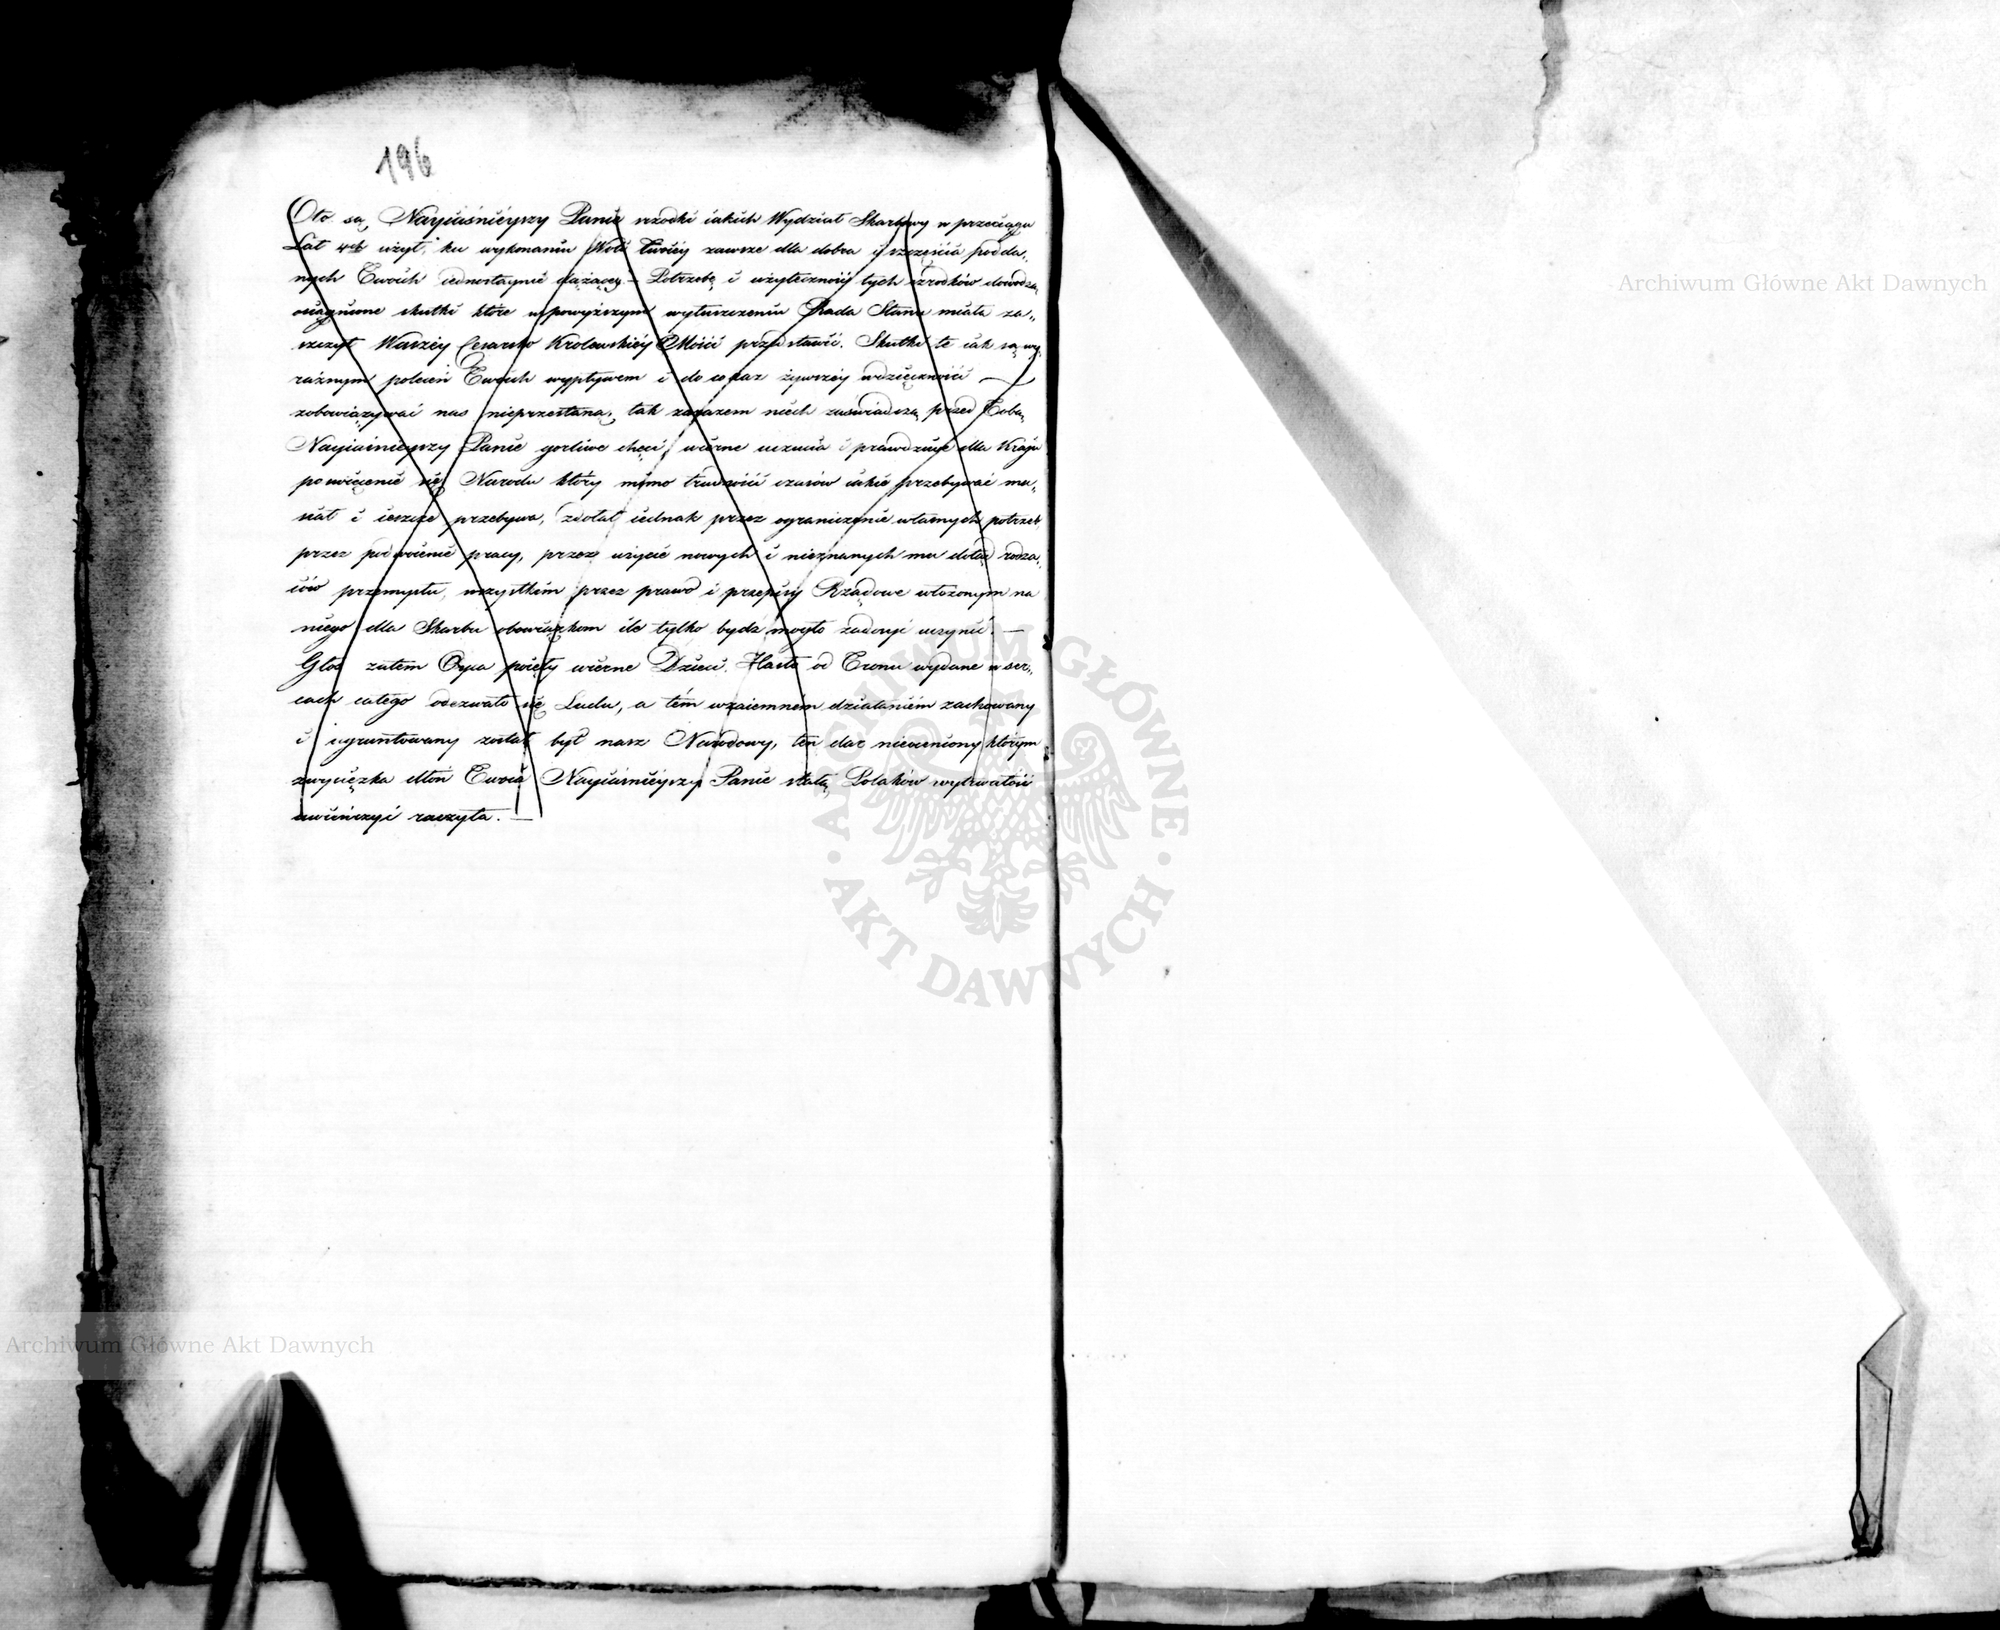 196
Oto są, Nayiaśnieyszy Panie srzodki iakich Wydział Skarbowy w przeciągu
Lat 4ch użył, ku wykonaniu Woli Twoiey zawsze dla dobra i szczęścia podda„
nych Twoich iednostaynie dążącey. – Potrzebę i użyteczność tych srzodków dowodzą
osiągnione skutki które w powyższym wyłuszczeniu Rada Stanu miała za„
szczyt Waszey Cesarsko Krolewskiey Mości przedstawić. Skutki te iak są wy„
raźnym poleceń Twoich wypływem i do coraz żywszey wdzięczności —
zobowiązywać nas nieprzestaną, tak zarazem niech zaświadczą przed Tobą,
Nayiaśnieyszy Panie gorliwe chęci, wierne uczucia i prawdziwe dla Kraju
poświęcenie się Narodu który mimo trudności czasów iakie przebywać mu„
siał i ieszcze przebywa, zdołał iednak przez ograniczenie własnych potrzeb,
przez podwoienie pracy, przez użycie nowych i nieznanych mu dotąd rodza„
iów przemysłu, wszystkim przez prawo i przepisy Rządowe włożonym na
niego dla Skarbu obowiązkom ile tylko bydź mogło zadosyć uczynić. —
Głos zatem Oyca poięły wierne Dzieci. Hasło od Tronu wydane w ser„
cach całego odezwało się Ludu, a tém wzaiemném działaniém zachowany
i ugruntowany został byt nasz Narodowy, ten dar nieoceniony którym
zwycięzka dłoń Twoia Nayiaśnieyszy Panie stałą Polaków wytrwałość
uwieńczyć raczyła. —
Archiwum Główne Akt Dawnych
Archiwum Główne Akt Dawnych
ARCHIWUM GŁÓWNE
· AKT DAWNYCH ·